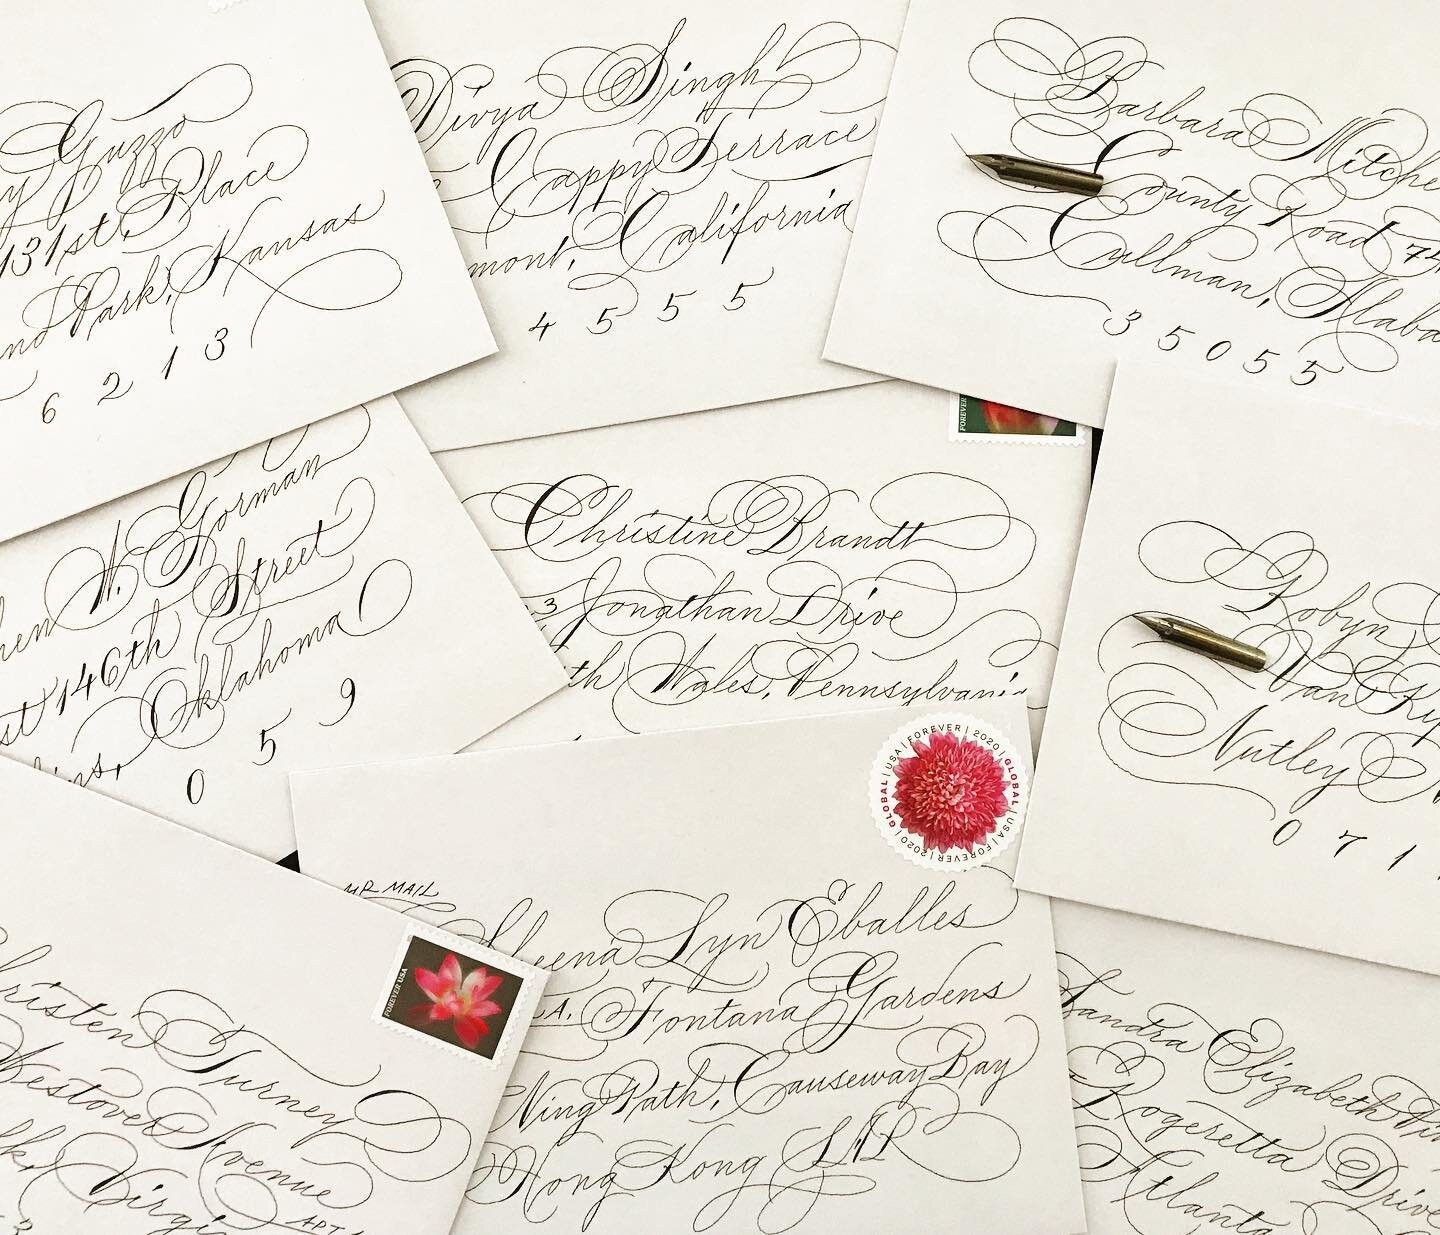 Guzzo
131st Place
Park, Kansas
6 2 1 3
Divya Singh
Cappy Terrace
mont, California
4 5 5 5
Barbara Mitche
County Road 74
Cullman, Alaba
3 5 0 5 5
W. Gorman
146th Street
Oklahoma
0 5 9
FOREVER
Christine Brandt
3 Jonathan Drive
th Wales, Pennsylvani
Robyn
Van Ky
Nutley
0 7 1
GLOBAL | USA | FOREVER | 2020 | GLOBAL | USA | FOREVER | 2020 |
MR MAIL
Sheena Lyn Eballes
A, Fontana Gardens
Ning Path, Causeway Bay
Hong Kong SAR
FOREVER USA
risten Turney
Westover Avenue
APT
Virgi
Sandra Elizabeth
Rogeretta Drive
Atlanta